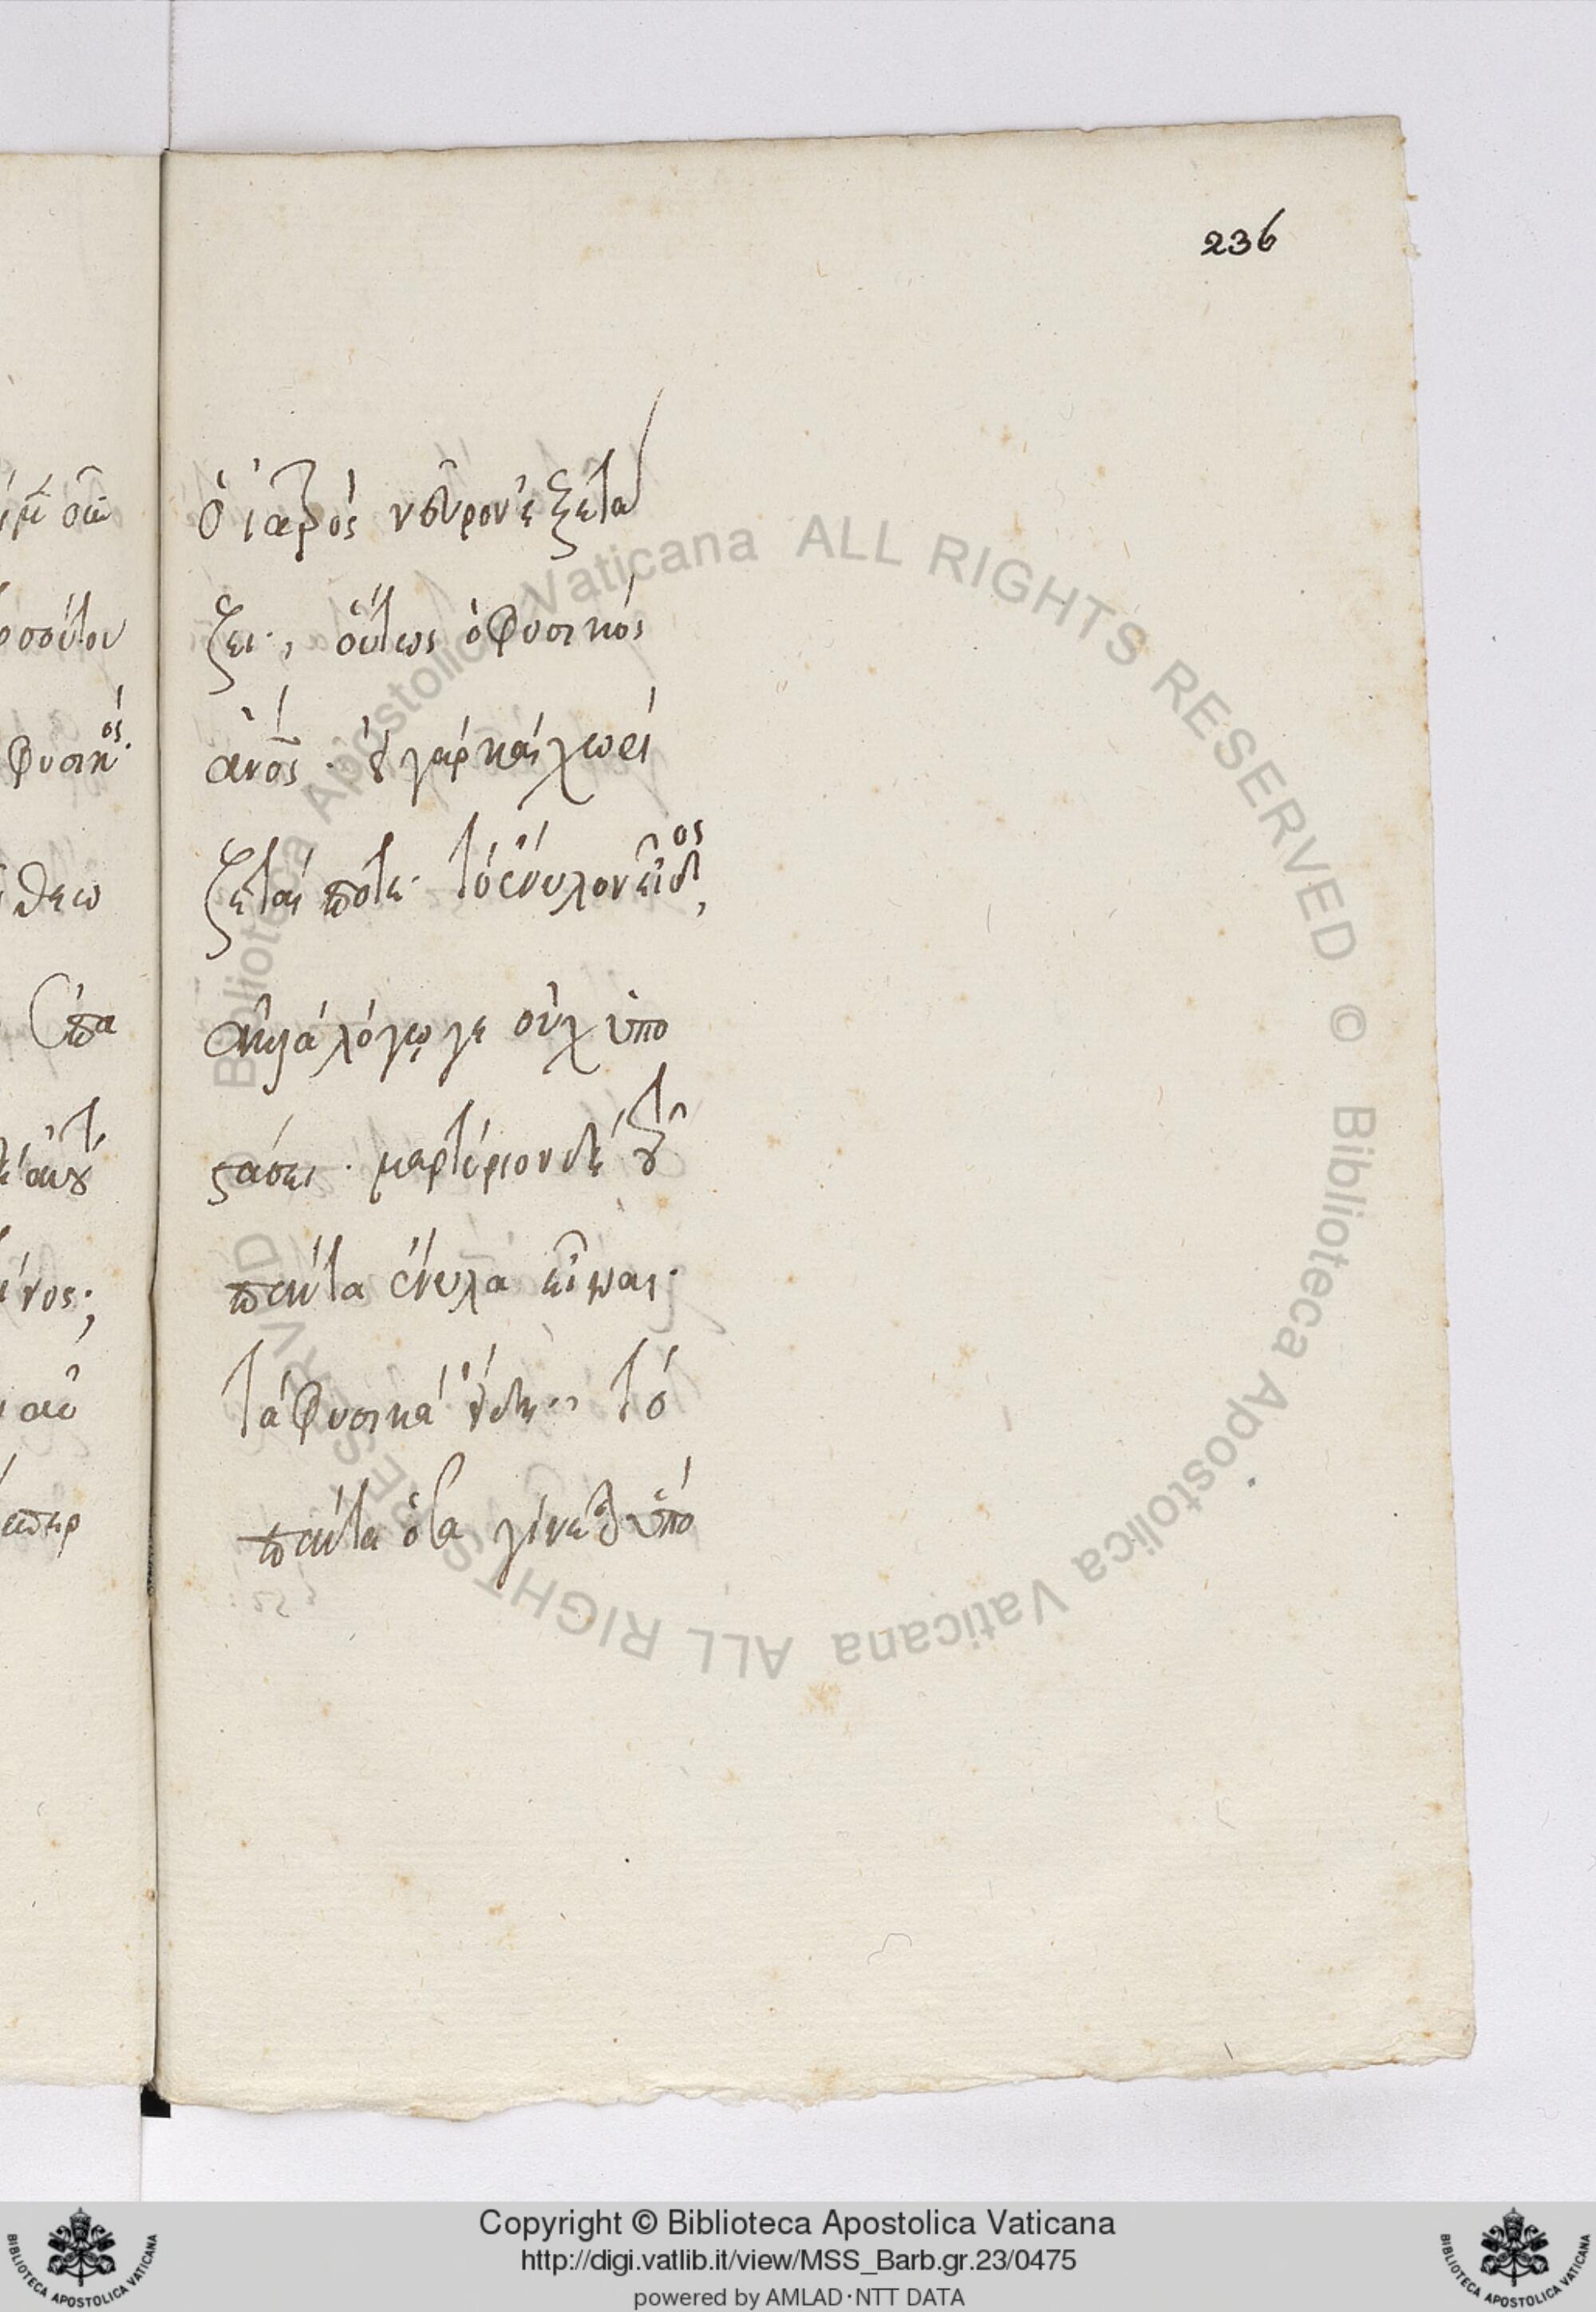 236
ὁ ἰατρὸς νεῦρον ἐξετά
ζει·, οὕτως ὁ φυσικὸς
ἀνος· οὐ γὰρ καὶ χωρί
ζεταί ποτε· τὸ ἔνυλον εἶδος,
ἀλλὰ λόγῳ γε οὐχ ὑπο
στάσει· μαρτύριον δὲ τοῦ
πάντα ἔνυλα εἶναι·
τὰ φυσικὰ ἤδη·, τὸ
πάντα ὅσα γίνεται ὑπὸ
Biblioteca Apostolica Vaticana ALL RIGHTS RESERVED ©
Biblioteca Apostolica Vaticana ALL RIGHTS RESERVED ©
Copyright © Biblioteca Apostolica Vaticana
http://digi.vatlib.it/view/MSS_Barb.gr.23/0475
powered by AMLAD·NTT DATA
BIBLIOTECA APOSTOLICA VATICANA
BIBLIOTECA APOSTOLICA VATICANA